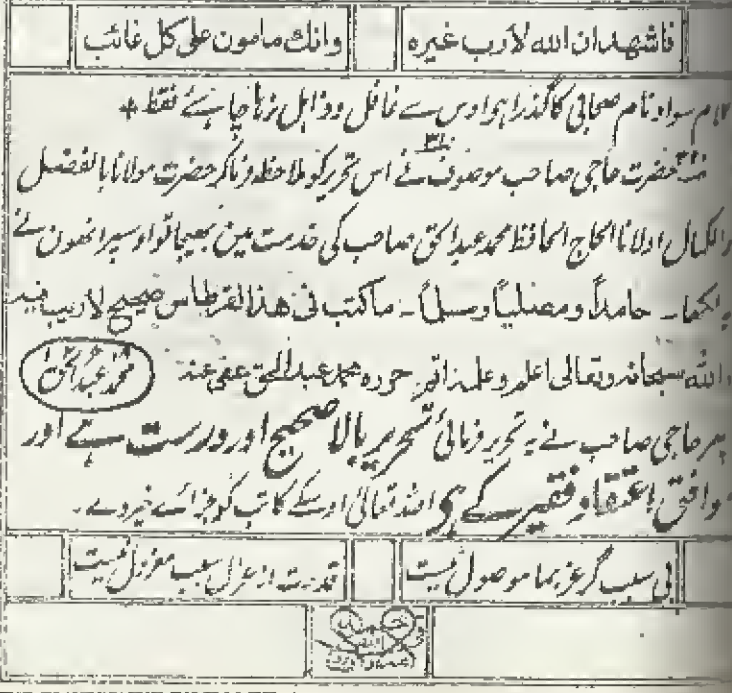 فاشهد ان الله لا رب غیره وانك مامون علی کل غائب
نام سواد نام صحابی کا گذرا ہو اوس سے غافل و ذاہل نہ رہنا چاہئے فقط +
حضرت حاجی صاحب موصوف نے اس تحریر کو ملاحظہ فرما کر حضرت مولانا بالفضل
والکمال اولانا الحاج الحافظ محمد عبد الحق صاحب کی خدمت مین بھیجا تو اوسپر انھون نے
یہ لکھا۔ حامداً ومصلیاً ومسلماً۔ ماکتب فی هذا القرطاس صحیح لاریب فیه
والله سبحانه وتعالی اعلم وعلمه اتم۔ حرره محمد عبد الحق عفی عنه محمد عبد الحق
پھر حاجی صاحب نے یہ تحریر فرمائی تحریر بالا صحیح اور درست ہے اور
موافق اعتقاد فقیر کے ہی اللہ تعالی اوسکے کاتب کو جزائے خیر دے۔
بی سبب گر عز بما موصول نیست قدرت از عزل سبب معزول نیست